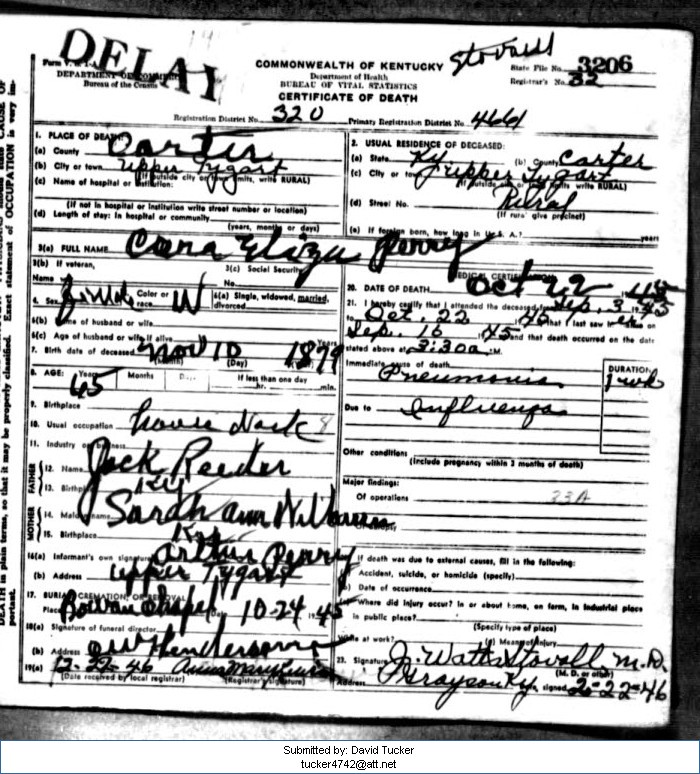 DELAY
Stovall
COMMONWEALTH OF KENTUCKY
State File No. 3206
Form V. S. 1-A
DEPARTMENT OF COMMERCE
Department of Health
Registrar's No. 32
Bureau of the Census
BUREAU OF VITAL STATISTICS
CERTIFICATE OF DEATH
Registration District No. 320 Primary Registration District No.
1. PLACE OF DEATH:
(a) County Carter
(b) City or town Upper Tygart
(If outside city or town limits, write RURAL)
(c) Name of hospital or institution:
(If not in hospital or institution write street number or location)
(d) Length of stay: In hospital or community
(years, months or days)
2. USUAL RESIDENCE OF DECEASED:
(a) State Ky (b) County Carter
(c) City or town Upper Tygart
(If outside city or town limits write RURAL)
(d) Street No. Rural
(If rural give precinct)
(e) If foreign born, how long in U. S. A.? years
3(a) FULL NAME Eliza Perry
3(b) If veteran,
Name war
3(c) Social Security
No.
4. Sex Female Color or race W 6(a) Single, widowed, married, divorced
6(b) Name of husband or wife
6(c) Age of husband or wife if alive Years
7. Birth date of deceased Nov 10 1879
(Month) (Day) (Year)
8. AGE: Years 65 Months Days If less than one day hr. min.
9. Birthplace
10. Usual occupation house work
11. Industry or business
FATHER
12. Name Jack Reeder
13. Birthplace Ky
MOTHER
14. Maiden name Sarah Ann
15. Birthplace Ky
16(a) Informant's own signature Arthur Perry
(b) Address Upper Tygart
17. BURIAL, CREMATION, OR REMOVAL
Place Bowan Chapel Date 10-24-45
18(a) Signature of funeral director Henderson
(b) Address
19(a) 12-22-46
(Date received by local registrar) (Registrar's signature)
MEDICAL CERTIFICATION
20. DATE OF DEATH Oct 22 1945
21. I hereby certify that I attended the deceased from Sep. 3, 1945
to Oct. 22 1945 that I last saw her alive on
Sep. 16 1945 and that death occurred on the date
stated above at 3:30 a. M.
Immediate cause of death
DURATION
Pneumonia 1 wk
Due to Influenza
Other conditions
(Include pregnancy within 3 months of death)
Major findings:
Of operations
33A
If death was due to external causes, fill in the following:
Accident, suicide, or homicide (specify)
Date of occurrence
Where did injury occur? In or about home, on farm, in industrial place
in public place?
(Specify type of place)
While at work? (e) Means of injury
22. Signature J. Watts Stovall, M.D.
(M. D. or other)
Address Grayson Ky signed 2-22-46
Submitted by: David Tucker
tucker4742@att.net